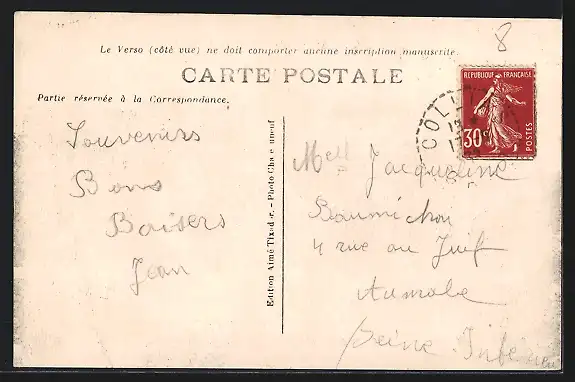 8
Le Verso (côté vue) ne doit comporter aucune inscription manuscrite.
CARTE POSTALE
Partie réservée à la Correspondance.
RÉPUBLIQUE FRANÇAISE
30c
POSTES
COLL
Souvenirs
Bons
Baisers
Jean
Edition Aimé Tixador. - Photo Cha e uneuf
Mell Jacqueline
Baumichou
4 rue au Juif
Aumale
Seine Infe